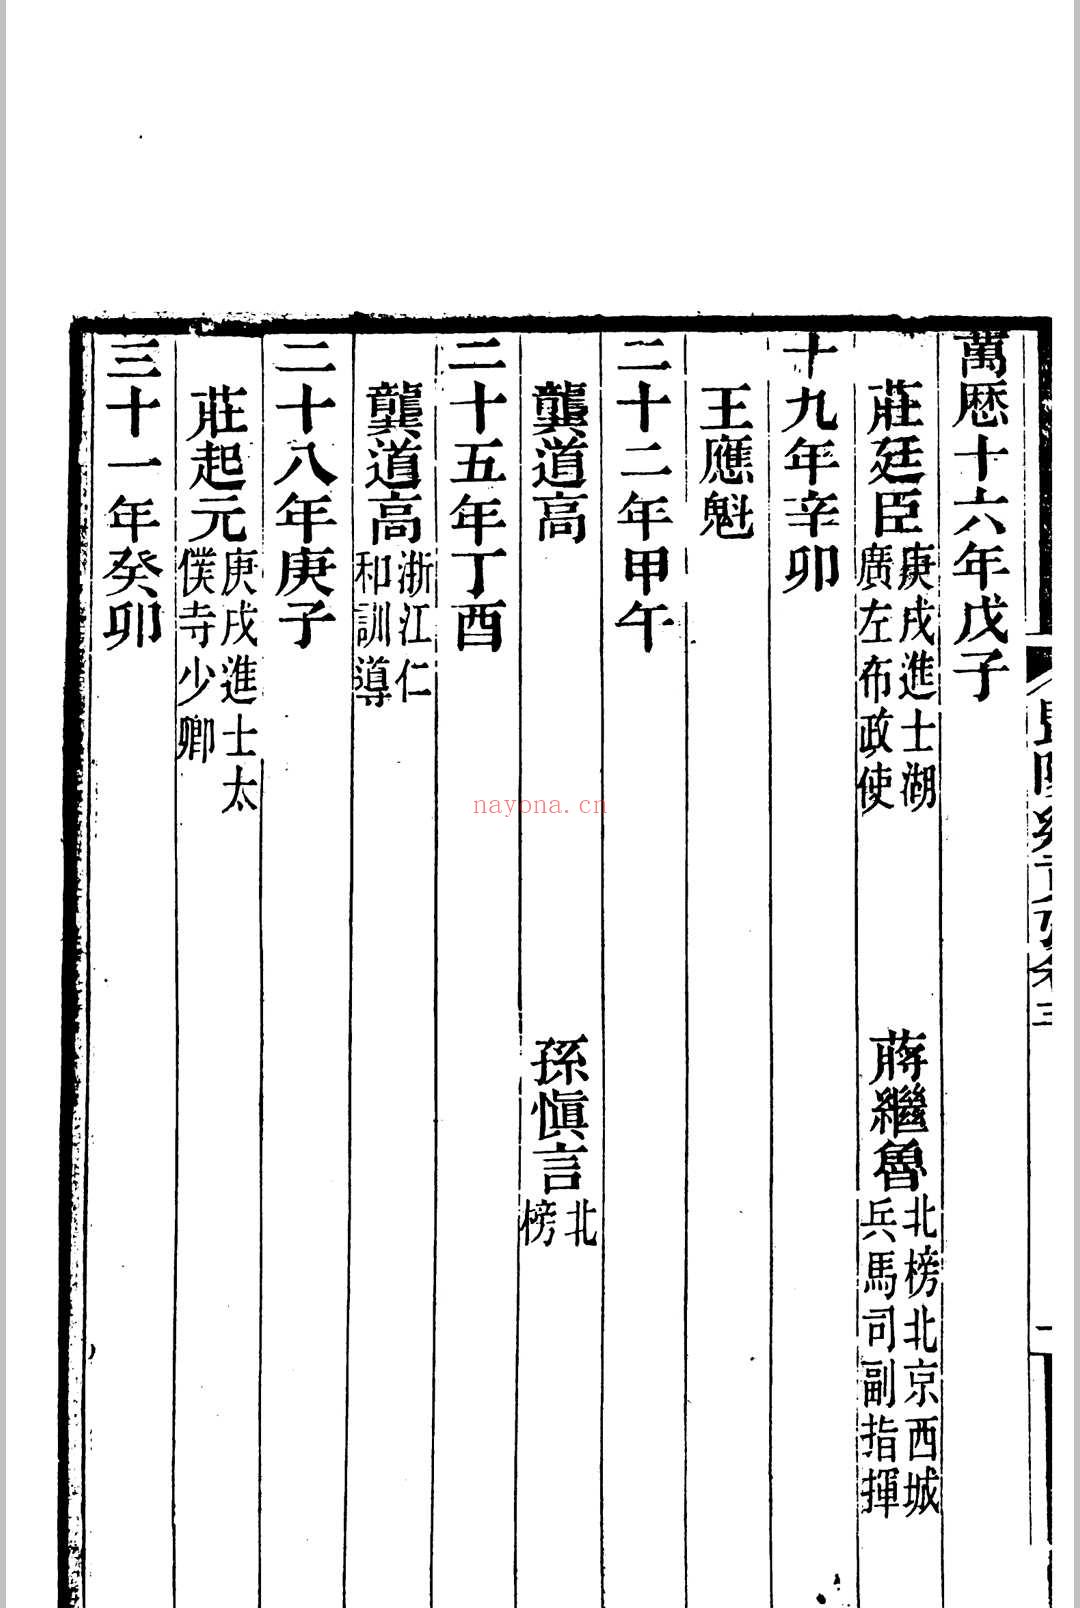 萬厯十六年戊子
莊廷臣庚戌進士湖廣左布政使
蔣繼魯北榜北京西城兵馬司副指揮
十九年辛卯
王應魁
二十二年甲午
龔道高
孫慎言北榜
二十五年丁酉
龔道高浙江仁和訓導
二十八年庚子
莊起元庚戌進士太僕寺少卿
三十一年癸卯
nayona.cn